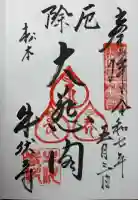 奉拝
令和七年
五月三日
厄除
大悲閣
松本
牛伏寺